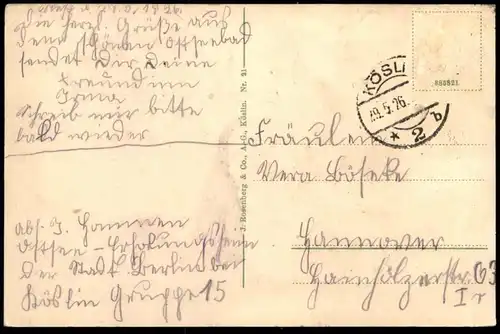 Die herzl. Grüße aus
dem schönen Ostseebad
sendet Dir Deine
Freundinn
Irma
Schreib nur bitte
bald wieder
abs. I. Hammen
Ostsee-Erholungsheim
der Stadt Berlin bei
Köslin Gruppe 15
J. Rosenberg & Co., A.-G., Köslin. Nr. 91
KÖSLI
29.5.26
* 2 b
Fräulein
Vera Böseke
Hannover
Hainhölzerstr. 63
I r